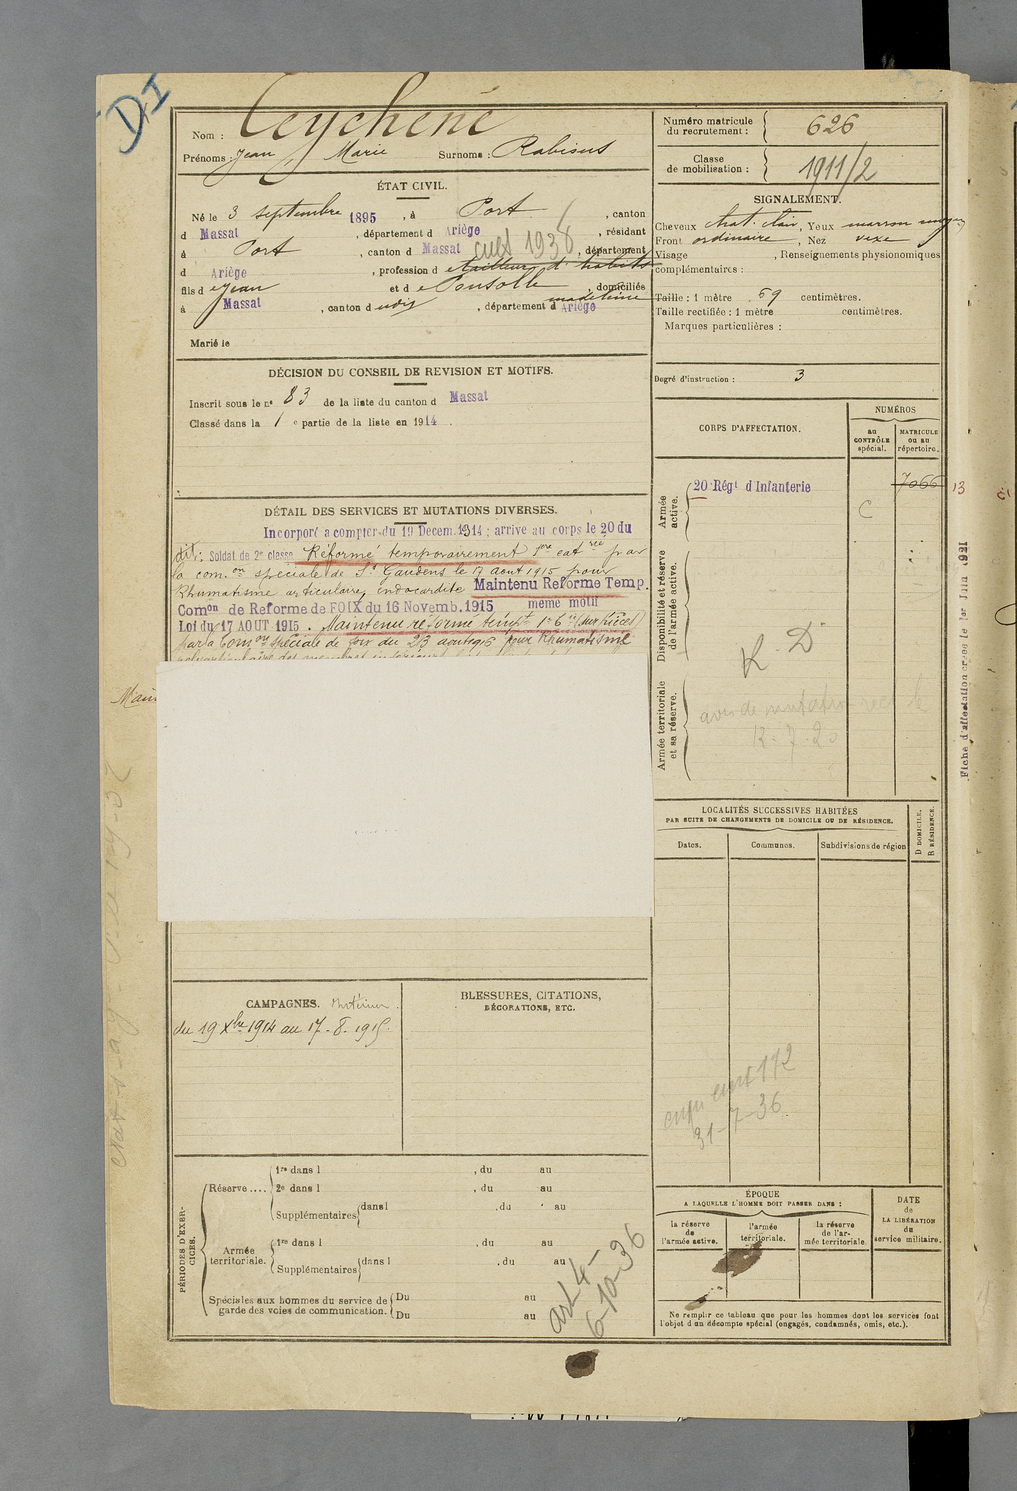 DI
Nom : Teychené
Prénoms : Jean Marie Surnoms : Rabisus
ÉTAT CIVIL.
Né le 3 septembre 1895, à Port, canton
d Massat, département d Ariège, résidant
à Port, canton d Massat, département
d Ariège, profession d tailleur d'habits
1938
fils de Jean et de Ponsolle madeleine, domiciliés
à Massat, canton d udis, département d Ariège
Marié le
DÉCISION DU CONSEIL DE REVISION ET MOTIFS.
Inscrit sous le nº 83 de la liste du canton d Massat
Classé dans la 1 e partie de la liste en 1914.
DÉTAIL DES SERVICES ET MUTATIONS DIVERSES.
Incorporé a compter du 19 Decem. 1914 ; arrive au corps le 20 du
dit: Soldat de 2e classe Réformé temporairement 1ere catrie par
la com.on spéciale de St Gaudens le 17 aout 1915 pour
Rhumatisme articulaire, endocardite Maintenu Reforme Temp.
Comon de Reforme de FOIX du 16 Novemb. 1915 même motif
Loi du 17 AOUT 1915. Maintenu reforme tempre 1e
par la Comon spéciale de Foix du 23 aout 1916 pour Rhumatisme
CAMPAGNES.
du 19 Xbre 1914 au 17-8-1915
BLESSURES, CITATIONS,
DÉCORATIONS, ETC.
PÉRIODES D'EXERCICES.
Réserve .... 1re dans l , du au
2e dans l , du au
Supplémentaires dans l , du au
Armée territoriale. 1re dans l , du au
Supplémentaires dans l , du au
Spéciales aux hommes du service de garde des voies de communication. Du au
Du au
art 4-
6-10-36
Numéro matricule du recrutement : 626
Classe de mobilisation : 1911/2
SIGNALEMENT.
Cheveux chat. clair, Yeux marron moyen
Front ordinaire, Nez vexe
Visage , Renseignements physionomiques
complémentaires :
Taille : 1 mètre 69 centimètres.
Taille rectifiée : 1 mètre centimètres.
Marques particulières :
Degré d'instruction : 3
CORPS D'AFFECTATION.
NUMÉROS
au CONTRÔLE spécial.
MATRICULE ou au répertoire.
Armée active.
20 Régt d'Infanterie
C
7066
13
Disponibilité et réserve de l'armée active.
K. D
Armée territoriale et sa réserve.
avis de mutation reçu le
12-7-20
Fiche d'affectation créée le 1er Juin 1921
LOCALITÉS SUCCESSIVES HABITÉES
PAR SUITE DE CHANGEMENTS DE DOMICILE OU DE RÉSIDENCE.
Dates.
Communes.
Subdivisions de région
D DOMICILE.
R RÉSIDENCE.
31-7-36
ÉPOQUE
A LAQUELLE L'HOMME DOIT PASSER DANS :
la réserve de l'armée active.
l'armée territoriale.
la réserve de l'armée territoriale.
DATE de LA LIBÉRATION du service militaire.
Ne remplir ce tableau que pour les hommes dont les services font
l'objet d'un décompte spécial (engagés, condamnés, omis, etc.).